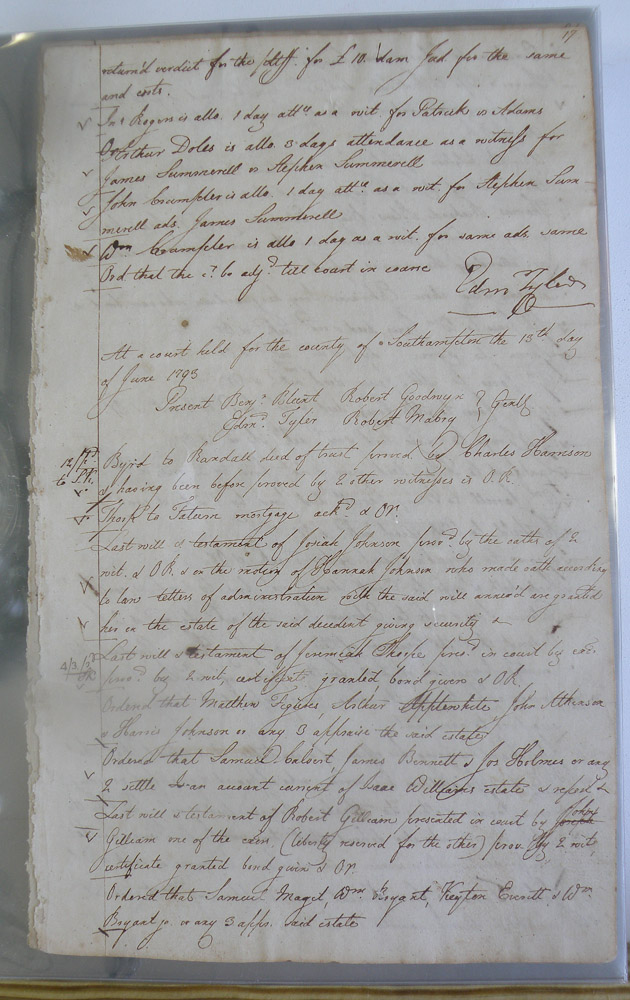 17
return'd verdict for the pltff. for £10. dam Jud for the same
and costs.
Jn.º Rogers is allo. 1 day att.ᵉ as a wit. for Patrick vs Adams
Arthur Doles is allo. 3 days attendance as a witness for
James Summerell vs Stephen Summerell
John Crumpler is allo. 1 day att.ᵉ as a wit. for Stephen Sum-
merell ads. James Summerell
Wm Crumpler is allo 1 day as a wit. for same ads. same
Ord that the c.ᵗ be adj.ᵈ till court in course
Edm Tyler
At a court held for the county of Southampton the 13th day
of June 1793
Present Benj.ᵃ Blunt Robert Goodwyn } Gent.
Edm.ᵈ Tyler Robert Mabry
Byrd to Randall deed of trust proved by Charles Harrison
& having been before proved by 2 other witnesses is O.R.
Thorp to Tatum mortgage ack.ᵈ & OR
Last will & testament of Josiah Johnson prov.ᵈ by the oaths of 2
wit. & OR. & on the motion of Hannah Johnson who made oath according
to law letters of administration with the said will annex'd are granted
her on the estate of the said decedent giving security &
4/3/3
Last will & testament of Jeremiah Thorpe pres.ᵈ in court by
prov.ᵈ by 2 wit, certificate granted bond given & OR
Ordered that Matthew Figures, Arthur Applewhite, John Atkinson
& Harris Johnson or any 3 appraise the said estate
Ordered that Samuel Calvert, James Bennett & Jos Holmes or any
2 settle an account current of Isaac Williams estate & report &
Last will & testament of Robert Gilliam presented in court by John
Gilliam one of the exors. (liberty reserved for the other) prov. by 2 wit,
certificate granted bond given & Or
Ordered that Samuel Maget, Wm. Bryant, Keyton Everitt, & Wm
Bryant jr. or any 3 appr. said estate